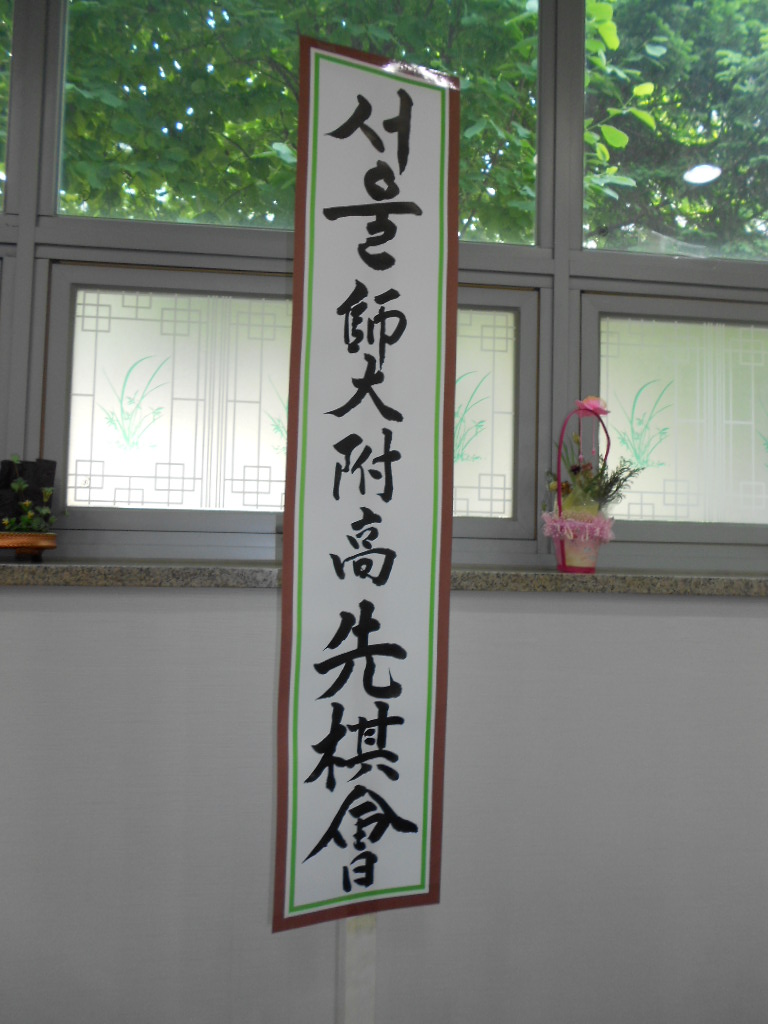 서울師大附高先棋會